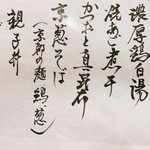 濃厚鶏白湯
焼あご煮干
かつおと真昆布
京葱そば
（京都の麺、鶏、葱）
親子丼